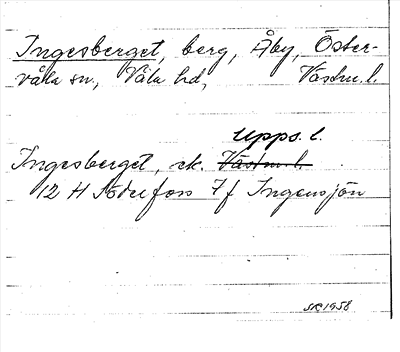 Ingesberget, berg, Åby, Öster-
våla sn, Våla hd, Västm. l.
Upps. l.
Ingesberget, ek. Västm. l.
12 H Söderfors 7 f Ingensjön
SK 1958